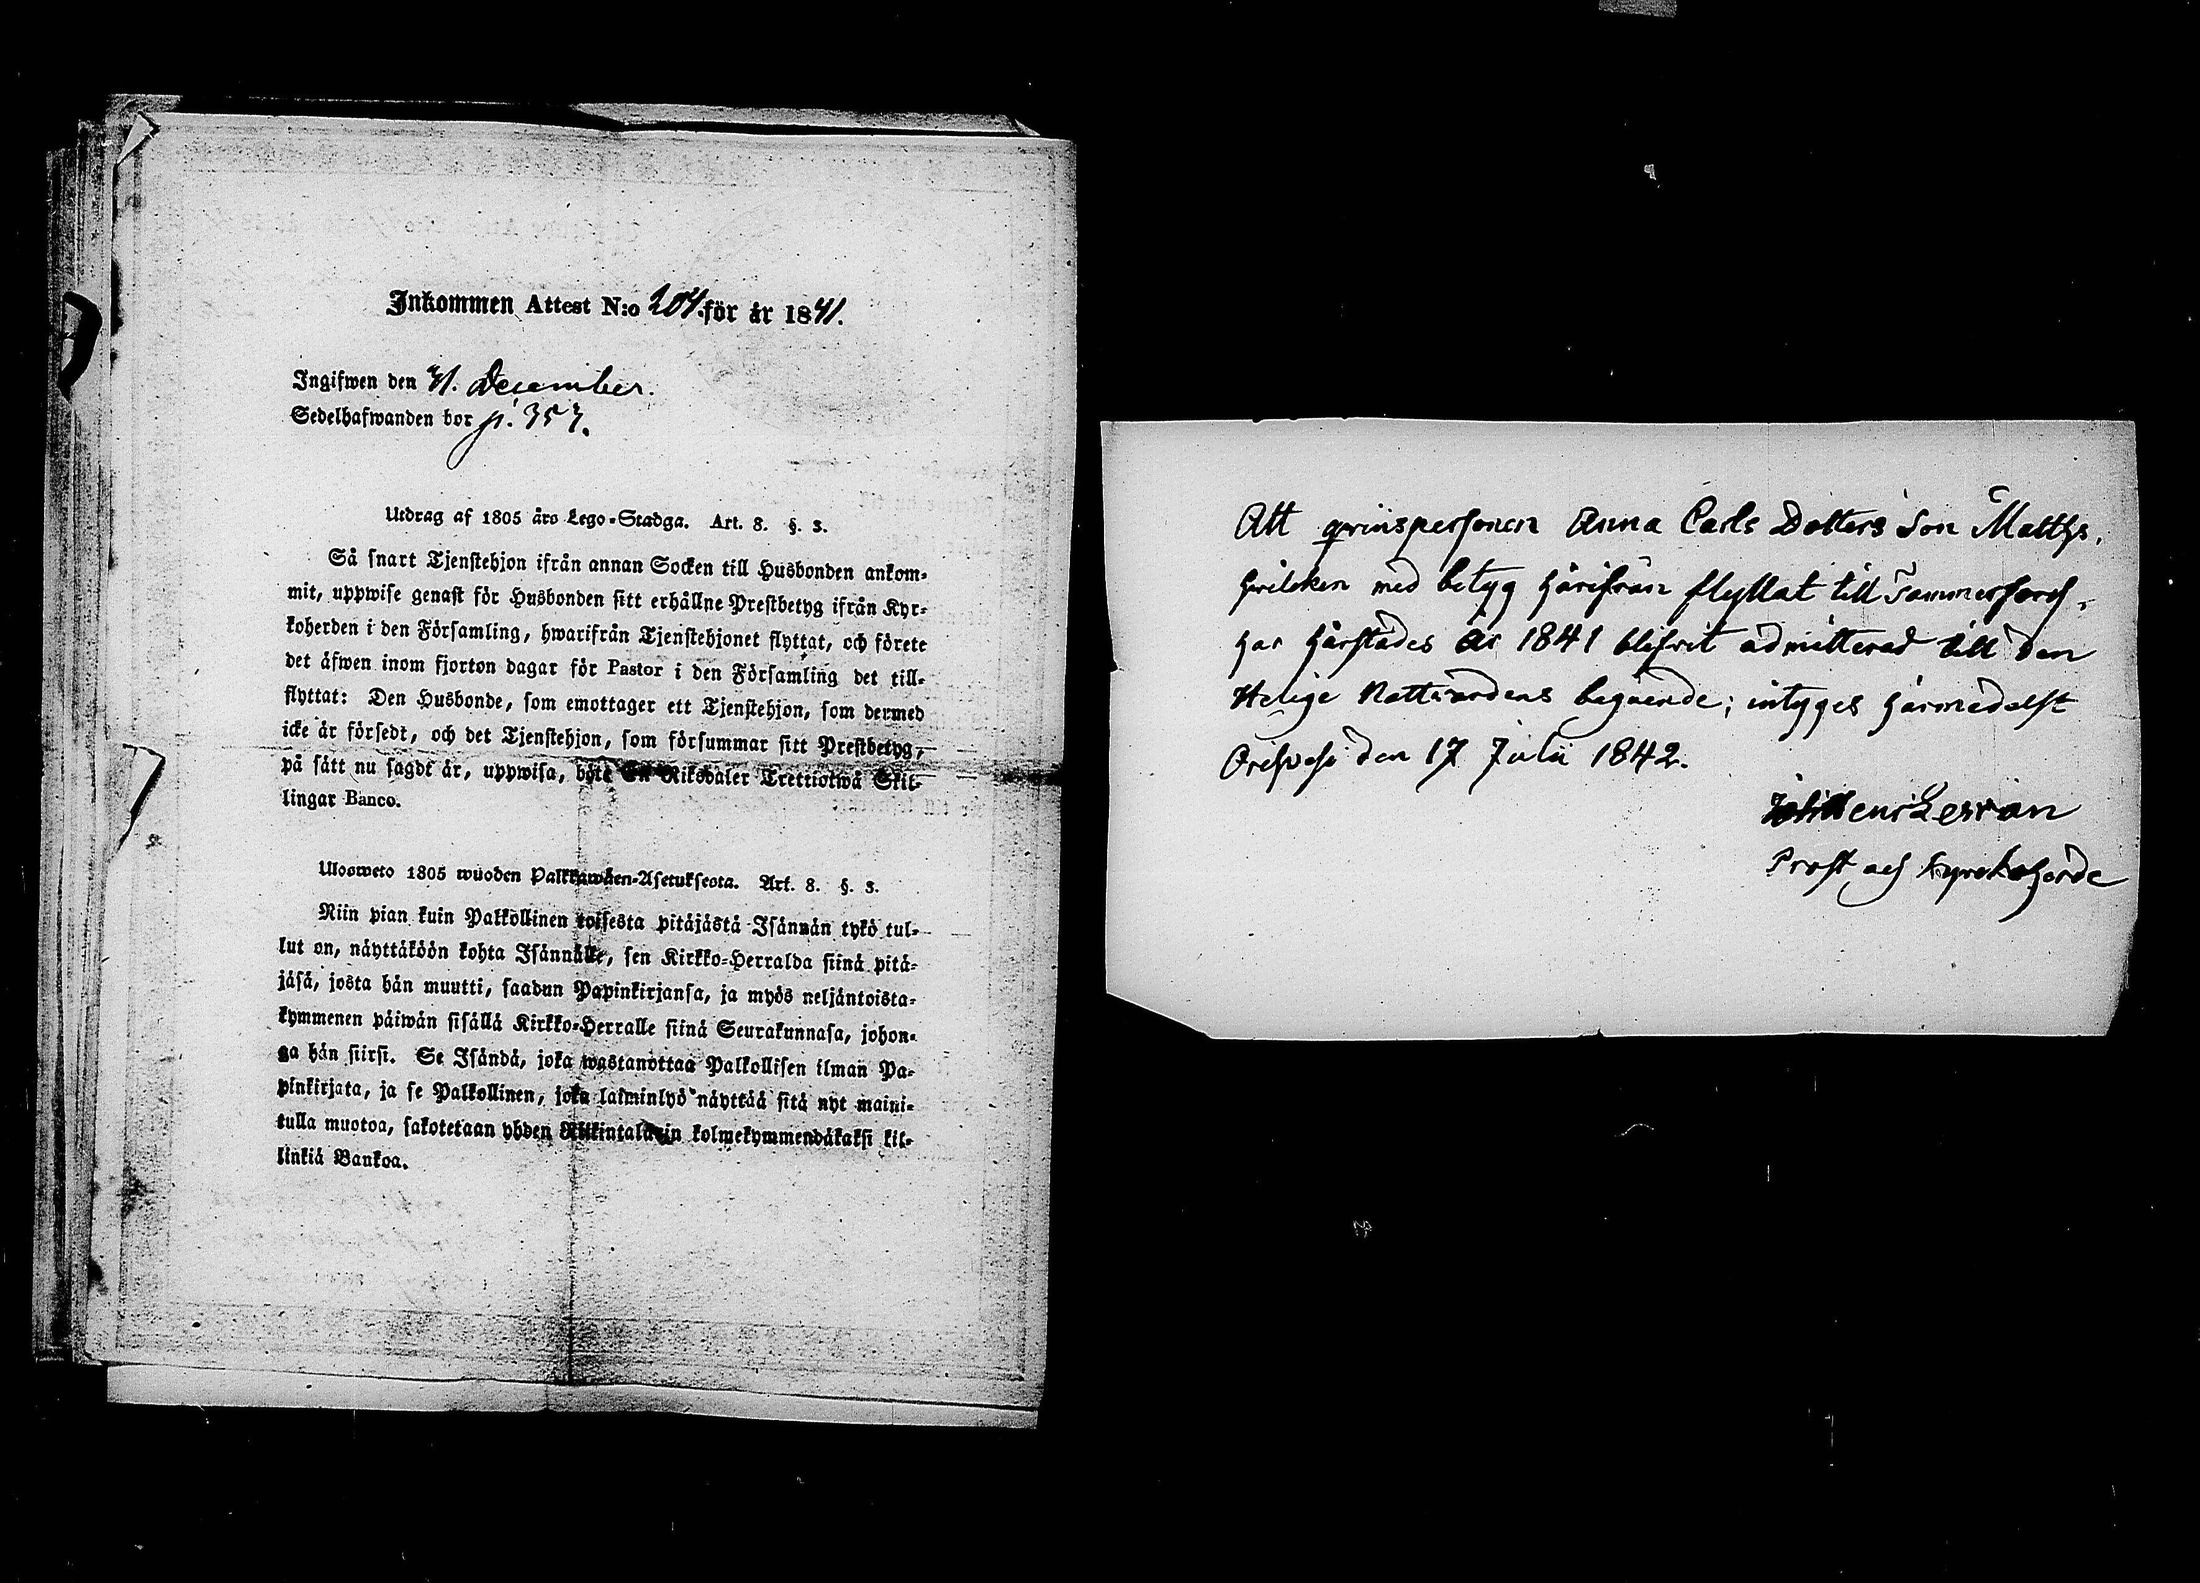 Inkommen Attest N:o 204. för år 1841.
Ingifwen den 31. December.
Sedelhafwanden bor p. 353.
Utdrag af 1805 års Lego-Stadga. Art. 8. §. 3.
Så snart Tjenstehjon ifrån annan Socken till Husbonden ankom-
mit, uppwise genast för Husbonden sitt erhållne Prestbetyg ifrån Kyr-
koherden i den Församling, hwarifrån Tjenstehjonet flyttat, och förete
det äfwen inom fjorton dagar för Pastor i den Församling det till-
flyttat: Den Husbonde, som emottager ett Tjenstehjon, som dermed
icke är försedt, och det Tjenstehjon, som försummar sitt Prestbetyg,
på sätt nu sagdt är, uppwisa, böte En Riksdaler Trettiotwå Skil-
lingar Banco.
Ulosweto 1805 wuoden Palkkawäen-Asetuksesta. Art. 8. §. 3.
Niin pian kuin Palkollinen toisesta pitäjästä Isännän tykö tul-
lut on, näyttäköön kohta Isännälle, sen Kirkko-Herralda siinä pitä-
jäsä, josta hän muutti, saadun Papinkirjansa, ja myös neljäntoista-
kymmenen päiwän sisällä Kirkko-Herralle siinä Seurakunnasa, johon-
ga hän siirsi. Se Isändä, joka wastanottaa Palkollisen ilman Pa-
pinkirjata, ja se Palkollinen, joka laiminlyö näyttää sitä nyt maini-
tulla muotoa, sakotetaan yhden Riikintalarin kolmekymmendäkaksi kil-
linkiä Bankoa.
Att qvinspersonen Anna Carls Dotters Son Matths,
hvilcken med betyg härifrån flyttat till Tammerfors,
har härstädes år 1841 blifvit admitterad till den
Helige Nattvardens begående; intyges härmedelst
Orihvesi den 17 Julii 1842.
Prost och Kyrckoherde